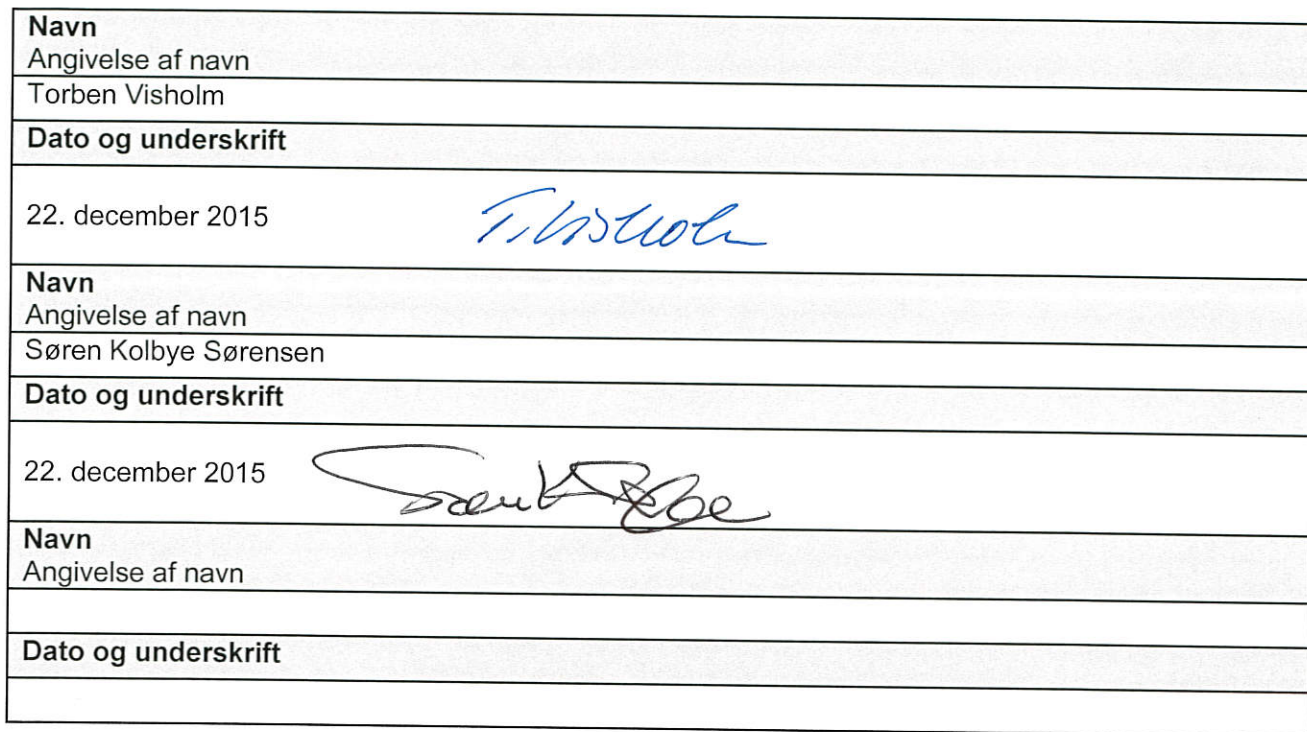 Navn
Angivelse af navn
Torben Visholm
Dato og underskrift
22. december 2015 T. Visholm
Navn
Angivelse af navn
Søren Kolbye Sørensen
Dato og underskrift
22. december 2015
Navn
Angivelse af navn
Dato og underskrift